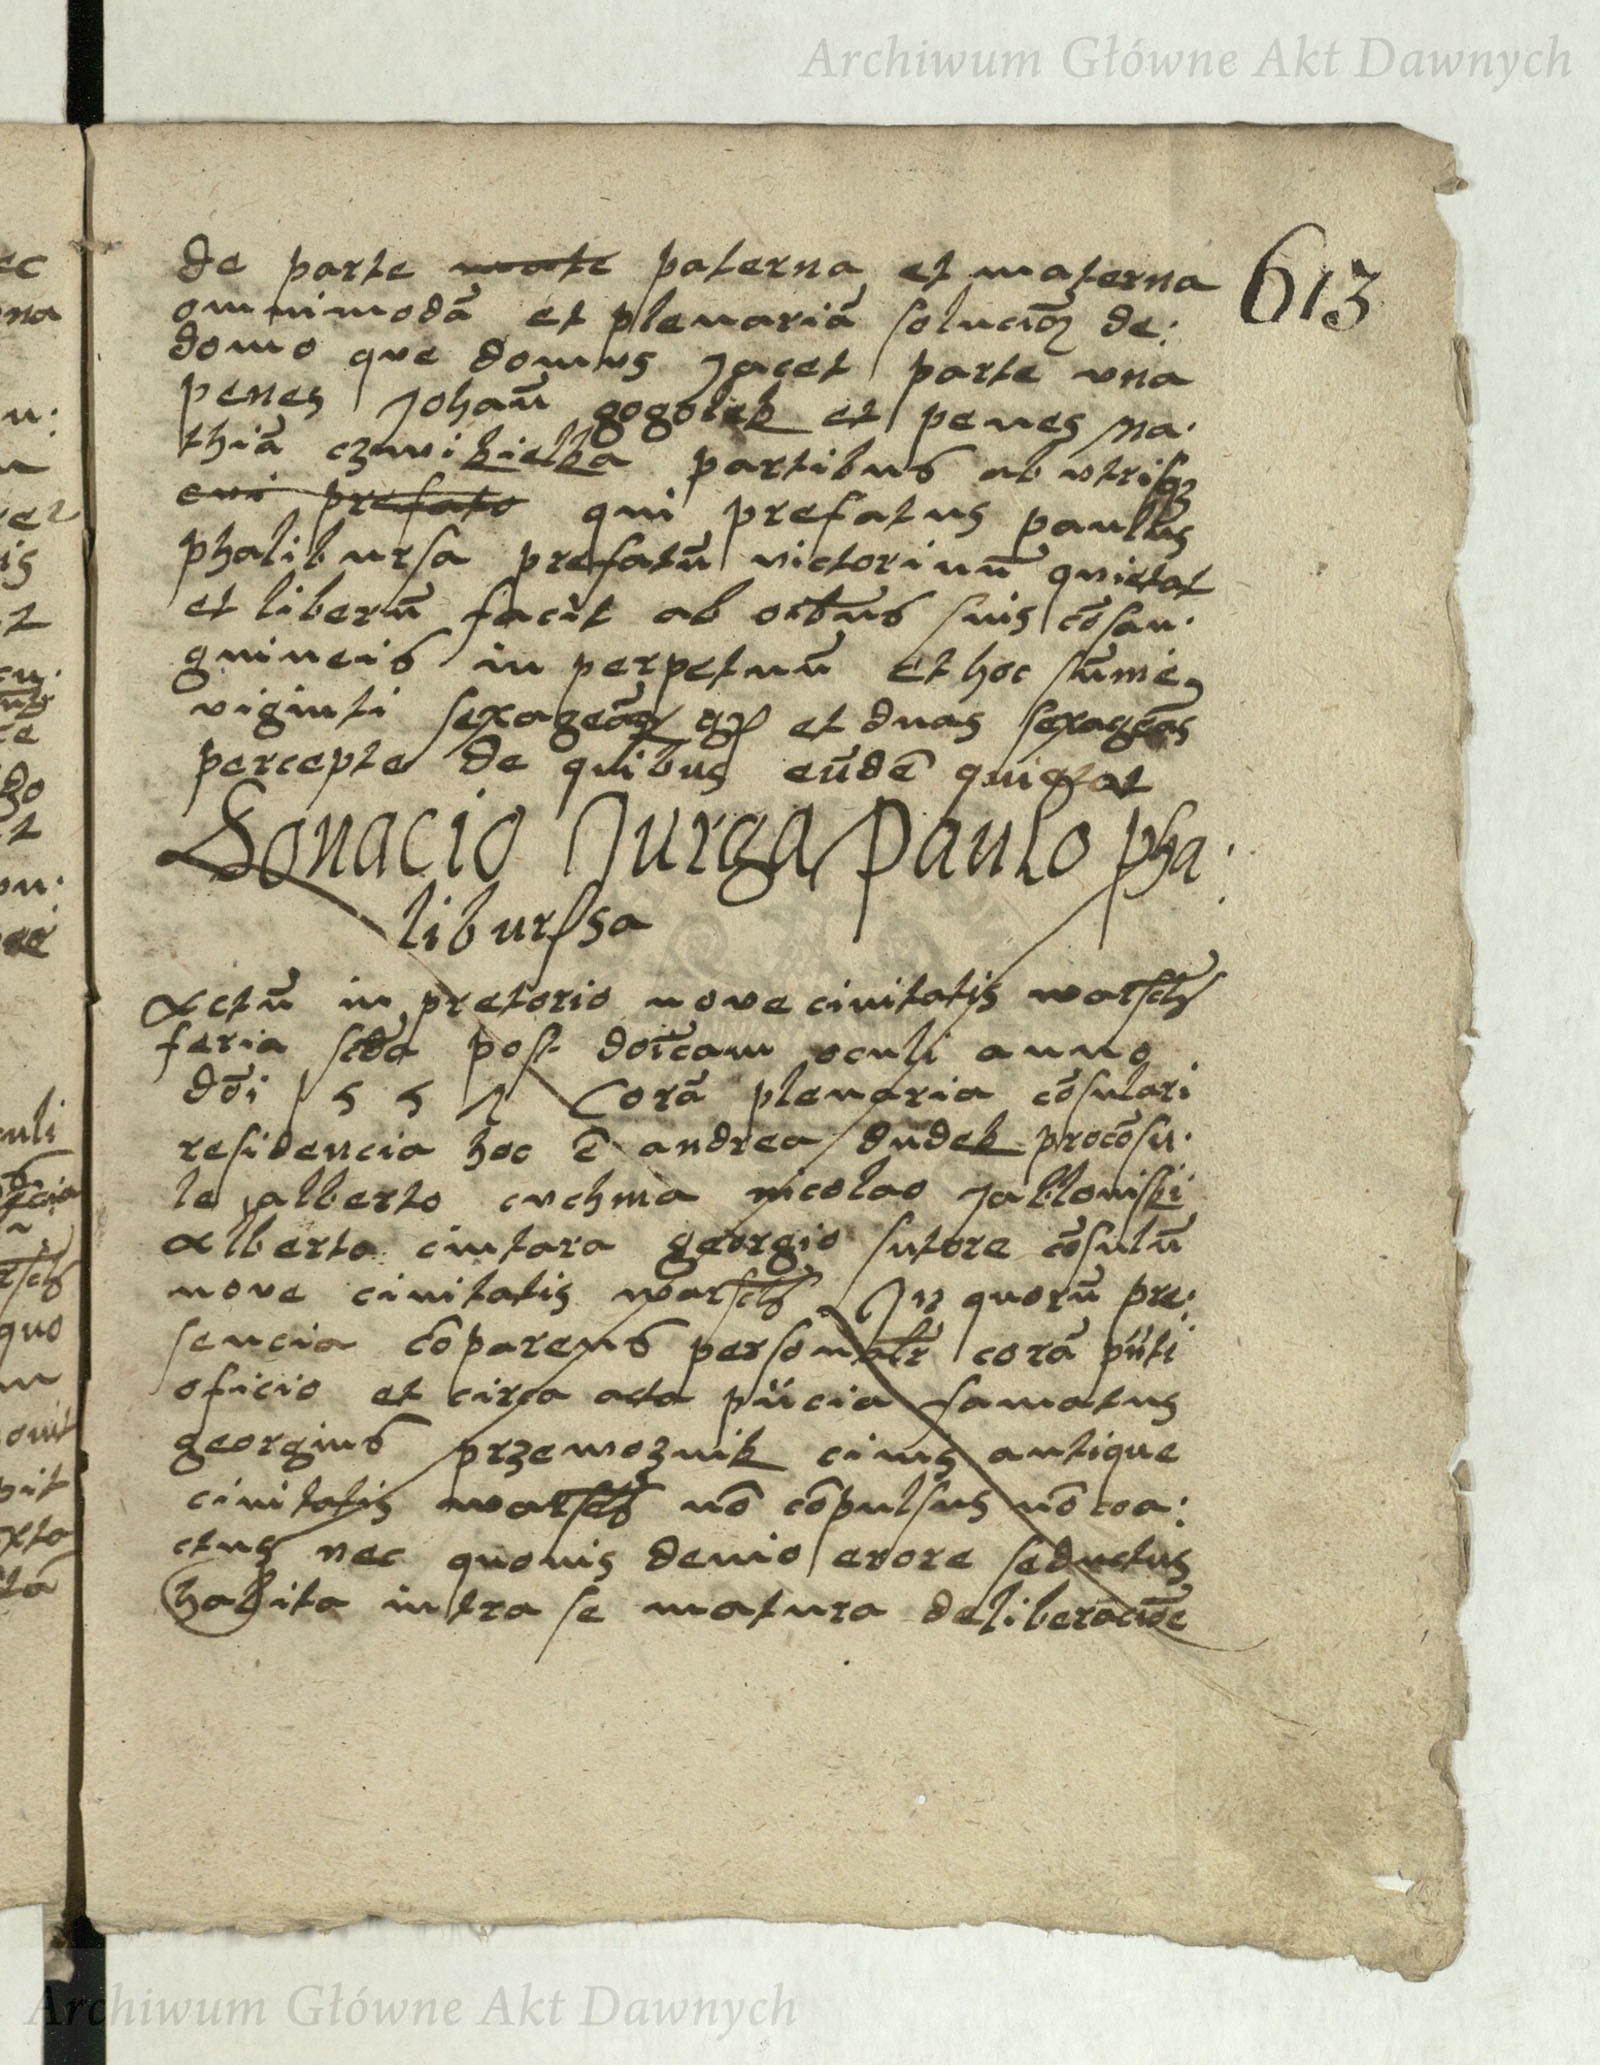 Archiwum Główne Akt Dawnych
613
de parte mate paterna et materna
omnimodā et plenariā solucioē de:
domo que domus Jacet parte vna
penes Johañ gogolek et penes Ma·
thiā czwikielka partibus ab vtrisqȝ
cui prefato qui prefatus paulus
phalibursa prefatū victorinū quietat
et liberū facit ab oībus suis cōsan·
guineis in perpetuū et hoc sūme
viginti sexageāȝ et duas sexageās
percepte de quibus eūdē quietat
Donacio Jurga Paulo pha·
liburssa
Actū in pretorio nove civitatis
feria scďa post doīcam oculi anno
dōi 1551 Corā plenaria cōsulari
residencia hoc ē andrea dudek procōsu·
le alberto cuchma nicolao Jablonıski
Alberto cintara georgio sutore cōsulū
nove civitatis In quorū pre·
sencia cōparens personalr corā pñti
oficio et circa acta pñcia famatus
georgius przewoznik civis antique
civitatis nō cōpulsus nō coa:
ctus nec quovis devio erore seductus
habita intra se matura deliberaciōe
Archiwum Główne Akt Dawnych